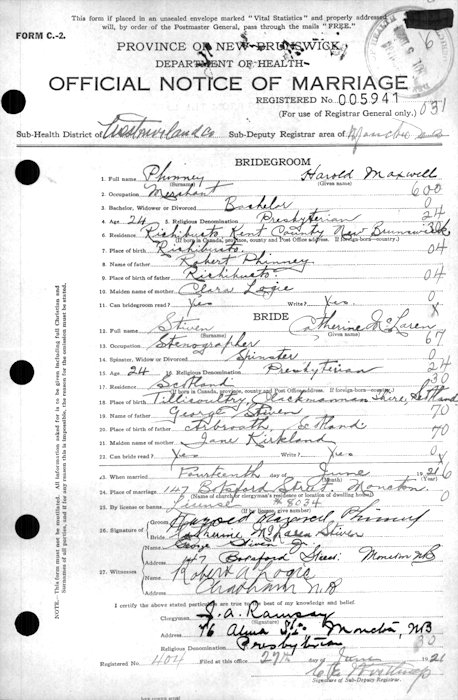 This form if placed in an unsealed envelope marked "Vital Statistics" and properly addressed
will, by order of the Postmaster General, pass through the mails "FREE."
FORM C-2.
PROVINCE OF NEW BRUNSWICK
DEPARTMENT OF HEALTH
OFFICIAL NOTICE OF MARRIAGE
REGISTERED No. 005941
(For use of Registrar General only.) 031
Sub-Health District of Westmorland Co Sub-Deputy Registrar area of Moncton
BRIDEGROOM
1. Full name Phinney Harold Maxwell
(Surname) (Given name)
2. Occupation Merchant 600
3. Bachelor, Widower or Divorced Bachelor 0
4. Age 24 5. Religious Denomination Presbyterian 24
6. Residence Richibucto Kent County New Brunswick
(If born in Canada, province, county and Post Office address. If foreign-born—country.)
7. Place of birth Richibucto. 04
8. Name of father Robert Phinney
9. Place of birth of father Richibucto. 04
10. Maiden name of mother Clara Logie
11. Can bridegroom read? Yes Write? Yes. 0
BRIDE X
12. Full name Stiven Catherine McLaren
(Surname) (Given name)
13. Occupation Stenographer 67
14. Spinster, Widow or Divorced Spinster 0
15. Age 24 16. Religious Denomination Presbyterian 24
17. Residence Scotland 30
(If born in Canada, province, county and Post Office address. If foreign-born—country.)
18. Place of birth Tillicoultry, Clackmannan Shire, Scotland
19. Name of father George Stiven 70
20. Place of birth of father Arbroath, Scotland 70
21. Maiden name of mother Jane Kirkland
22. Can bride read? Yes Write? Yes 0
23. When married Fourteenth day of June 1926
(Month)
24. Place of marriage 147 Botsford Street Moncton.
(Name of church or clergyman's residence or location of dwelling house)
25. By license or banns License #8034
(If by license, give number)
26. Signature of Groom Harold Maxwell Phinney
Bride Catherine McLaren Stiven
George Stiven
147 Botsford Street Moncton NB
27. Witnesses Robert A Logie
Chatham NB
I certify the above stated particulars are true to the best of my knowledge and belief.
Clergyman J. A. Ramsay
(Signature)
Address 76 Alma St. Moncton, NB
Religious Denomination Presbyterian 30
Registered No. 404 Filed at this office 27th June 1926
Signature of Sub-Deputy Registrar.
NOTE.—All information asked for is to be given including full Christian and
Surnames of all parties, and if any of this is impossible, the reason for the omission must be stated.
This form must not be mutilated.